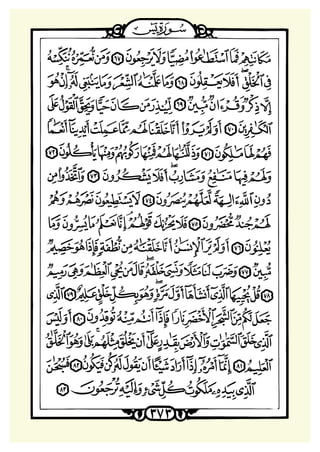 سُورَةُ يٰسٓ
مَكَانَتِهِمْ فَمَا ٱسْتَطَٰعُوا۟ مُضِيًّا وَلَا يَرْجِعُونَ ٦٧ وَمَن نُّعَمِّرْهُ نُنَكِّسْهُ
فِى ٱلْخَلْقِ أَفَلَا يَعْقِلُونَ ٦٨ وَمَا عَلَّمْنَٰهُ ٱلشِّعْرَ وَمَا يَنۢبَغِى لَهُۥٓ إِنْ هُوَ
إِلَّا ذِكْرٌ وَقُرْءَانٌ مُّبِينٌ ٦٩ لِّيُنذِرَ مَن كَانَ حَيًّا وَيَحِقَّ ٱلْقَوْلُ عَلَى
ٱلْكَٰفِرِينَ ٧٠ أَوَلَمْ يَرَوْا۟ أَنَّا خَلَقْنَا لَهُم مِّمَّا عَمِلَتْ أَيْدِينَآ أَنْعَٰمًا
فَهُمْ لَهَا مَٰلِكُونَ ٧١ وَذَلَّلْنَٰهَا لَهُمْ فَمِنْهَا رَكُوبُهُمْ وَمِنْهَا يَأْكُلُونَ ٧٢
وَلَهُمْ فِيهَا مَنَٰفِعُ وَمَشَارِبُ أَفَلَا يَشْكُرُونَ ٧٣ وَٱتَّخَذُوا۟ مِن
دُونِ ٱللَّهِ ءَالِهَةً لَّعَلَّهُمْ يُنصَرُونَ ٧٤ لَا يَسْتَطِيعُونَ نَصْرَهُمْ وَهُمْ
لَهُمْ جُندٌ مُّحْضَرُونَ ٧٥ فَلَا يَحْزُنكَ قَوْلُهُمْ إِنَّا نَعْلَمُ مَا يُسِرُّونَ وَمَا
يُعْلِنُونَ ٧٦ أَوَلَمْ يَرَ ٱلْإِنسَٰنُ أَنَّا خَلَقْنَٰهُ مِن نُّطْفَةٍ فَإِذَا هُوَ خَصِيمٌ
مُّبِينٌ ٧٧ وَضَرَبَ لَنَا مَثَلًا وَنَسِىَ خَلْقَهُۥ قَالَ مَن يُحْىِ ٱلْعِظَٰمَ وَهِىَ رَمِيمٌ
٧٨ قُلْ يُحْيِيهَا ٱلَّذِىٓ أَنشَأَهَآ أَوَّلَ مَرَّةٍ وَهُوَ بِكُلِّ خَلْقٍ عَلِيمٌ ٧٩ ٱلَّذِى
جَعَلَ لَكُم مِّنَ ٱلشَّجَرِ ٱلْأَخْضَرِ نَارًا فَإِذَآ أَنتُم مِّنْهُ تُوقِدُونَ ٨٠ أَوَلَيْسَ
ٱلَّذِى خَلَقَ ٱلسَّمَٰوَٰتِ وَٱلْأَرْضَ بِقَٰدِرٍ عَلَىٰٓ أَن يَخْلُقَ مِثْلَهُم بَلَىٰ وَهُوَ ٱلْخَلَّٰقُ
ٱلْعَلِيمُ ٨١ إِنَّمَآ أَمْرُهُۥٓ إِذَآ أَرَادَ شَيْـًٔا أَن يَقُولَ لَهُۥ كُن فَيَكُونُ ٨٢ فَسُبْحَٰنَ
ٱلَّذِى بِيَدِهِۦ مَلَكُوتُ كُلِّ شَىْءٍ وَإِلَيْهِ تُرْجَعُونَ ٨٣
٣٧٣